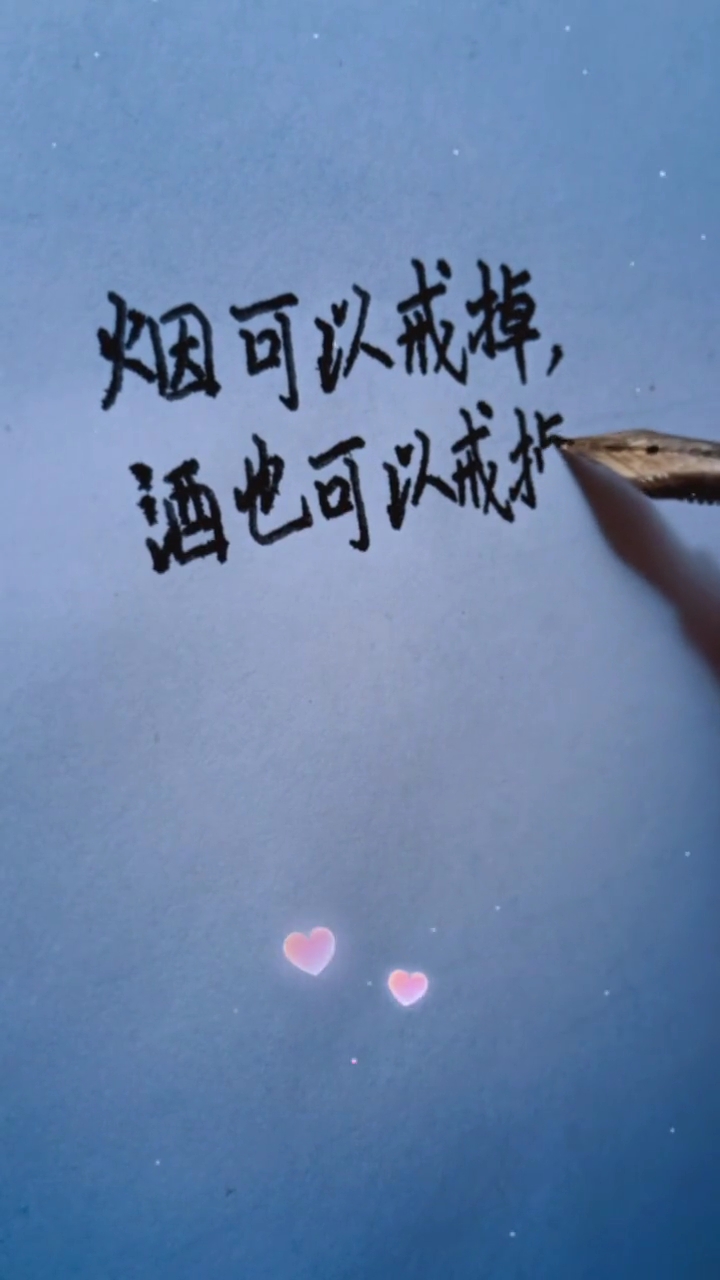 烟可以戒掉,
酒也可以戒